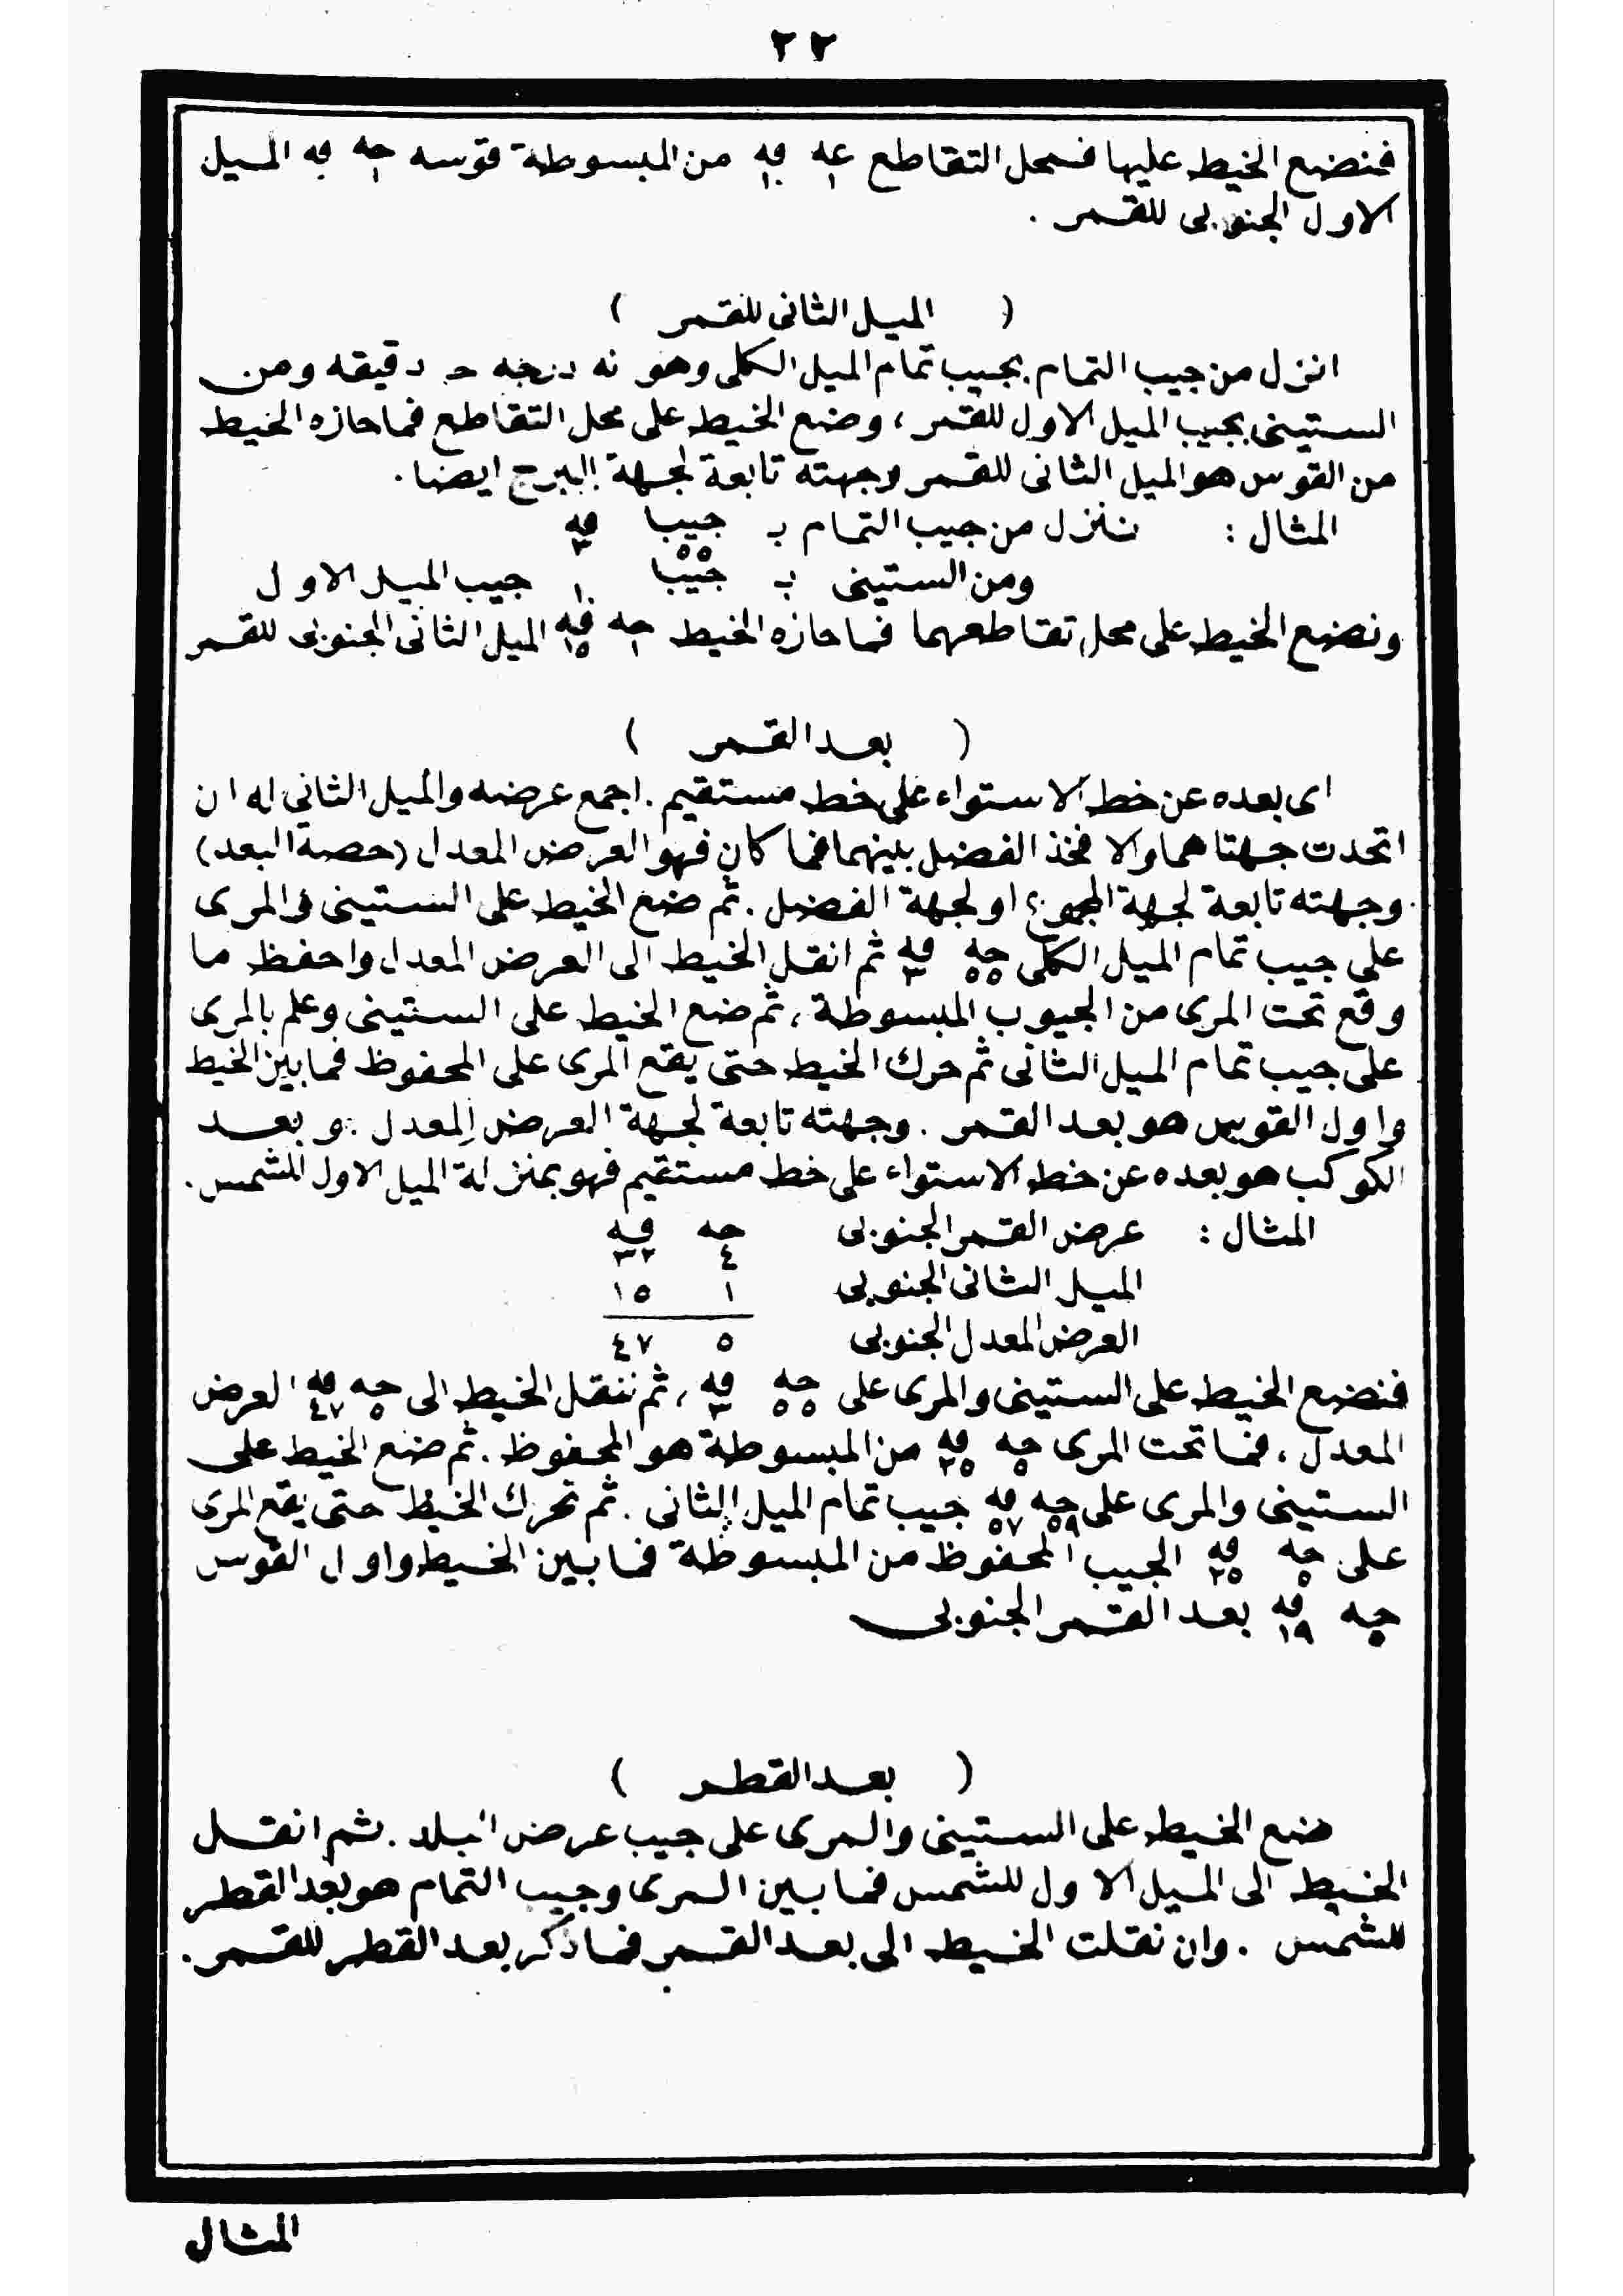 ٢٢
فنضع الخيط عليها فمحل التقاطع عه فه من المبسوطة قوسه جه فه الميل
١ ١٠ ١
الاول الجنوبى للقمر .
( الميل الثانى للقمر )
انزل من جيب التمام بجيب تمام الميل الكلى وهو نه درجه ج دقيقه ومن
الستينى بجيب الميل الاول للقمر ، وضع الخيط على محل التقاطع فما حازه الخيط
من القوس هو الميل الثانى للقمر وجهته تابعة لجهة البرج ايضا .
المثال : ننزل من جيب التمام بـ جيبا فه
٥٥ ٣
ومن الستينى بـ جيبا جيب الميل الاول
١ ١٠
ونضع الخيط على محل تقاطعهما فما حازه الخيط جه فه الميل الثانى الجنوبى للقمر
١ ١٥
( بعد القمر )
اى بعده عن خط الاستواء على خط مستقيم . اجمع عرضه والميل الثاني له ان
اتحدت جهتا هما والا فخذ الفضل بينهما فما كان فهو العرض المعدل (حصة البعد)
وجهته تابعة لجهة المجموع او لجهة الفضل . ثم ضع الخيط على الستينى والمرى
على جيب تمام الميل الكلى جه فه ثم انقل الخيط الى العرض المعدل واحفظ ما
٥٥ ٣
وقع تحت المرى من الجيوب المبسوطة ، ثم ضع الخيط على الستينى وعلم بالمرى
على جيب تمام الميل الثانى ثم حرك الخيط حتى يقع المرى على المحفوظ فما بين الخيط
واول القوس هو بعد القمر . وجهته تابعة لجهة العرض المعدل . و بعد
الكوكب هو بعده عن خط الاستواء على خط مستقيم فهو بمنزلة الميل الاول للشمس .
المثال : عرض القمر الجنوبى جه فه
٤ ٣٢
الميل الثانى الجنوبى ١ ١٥
العرض المعدل الجنوبى ٥ ٤٧
فنضع الخيط على الستينى والمرى على جه فه ، ثم ننقل الخيط الى جه فه العرض
٥٥ ٣ ٥ ٤٧
المعدل ، فما تحت المرى جه فه من المبسوطة هو المحفوظ . ثم ضع الخيط على
٥ ٢٥
الستينى والمرى على جه فه جيب تمام الميل الثانى . ثم تحرك الخيط حتى يقع المرى
٥٩ ٥٧
على جه فه الجيب المحفوظ من المبسوطة فما بين الخيط واول القوس
٥ ٢٥
جه فه بعد القمر الجنوبى
٥ ١٩
( بعد القطر )
ضع الخيط على الستينى والمرى على جيب عرض البلد . ثم انقل
الخيط الى الميل الاول للشمس فما بين المرى وجيب التمام هو بعد القطر
للشمس . وان نقلت الخيط الى بعد القمر فما ذكر بعد القطر للقمر .
المثال